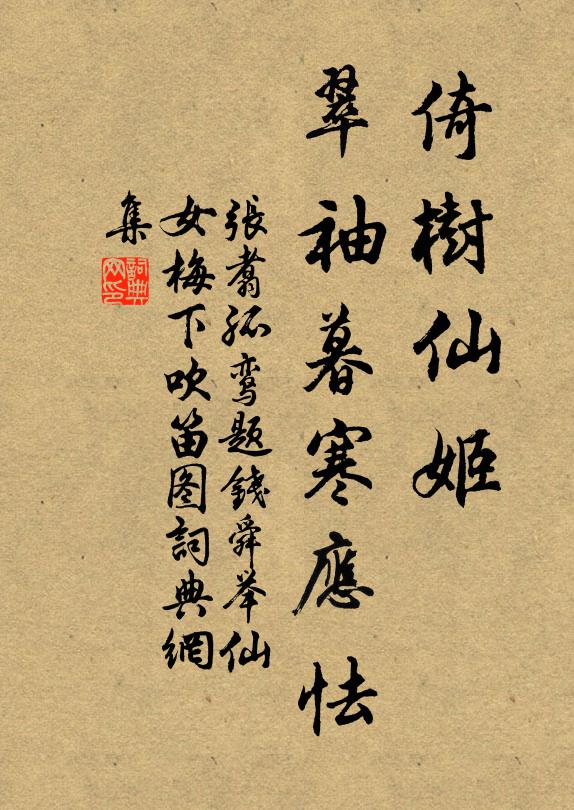 倚樹仙姬
翠袖暮寒應怯
張翥孤鸾題錢舜举仙
女梅下吹笛图詞典網
集
詞典
网印